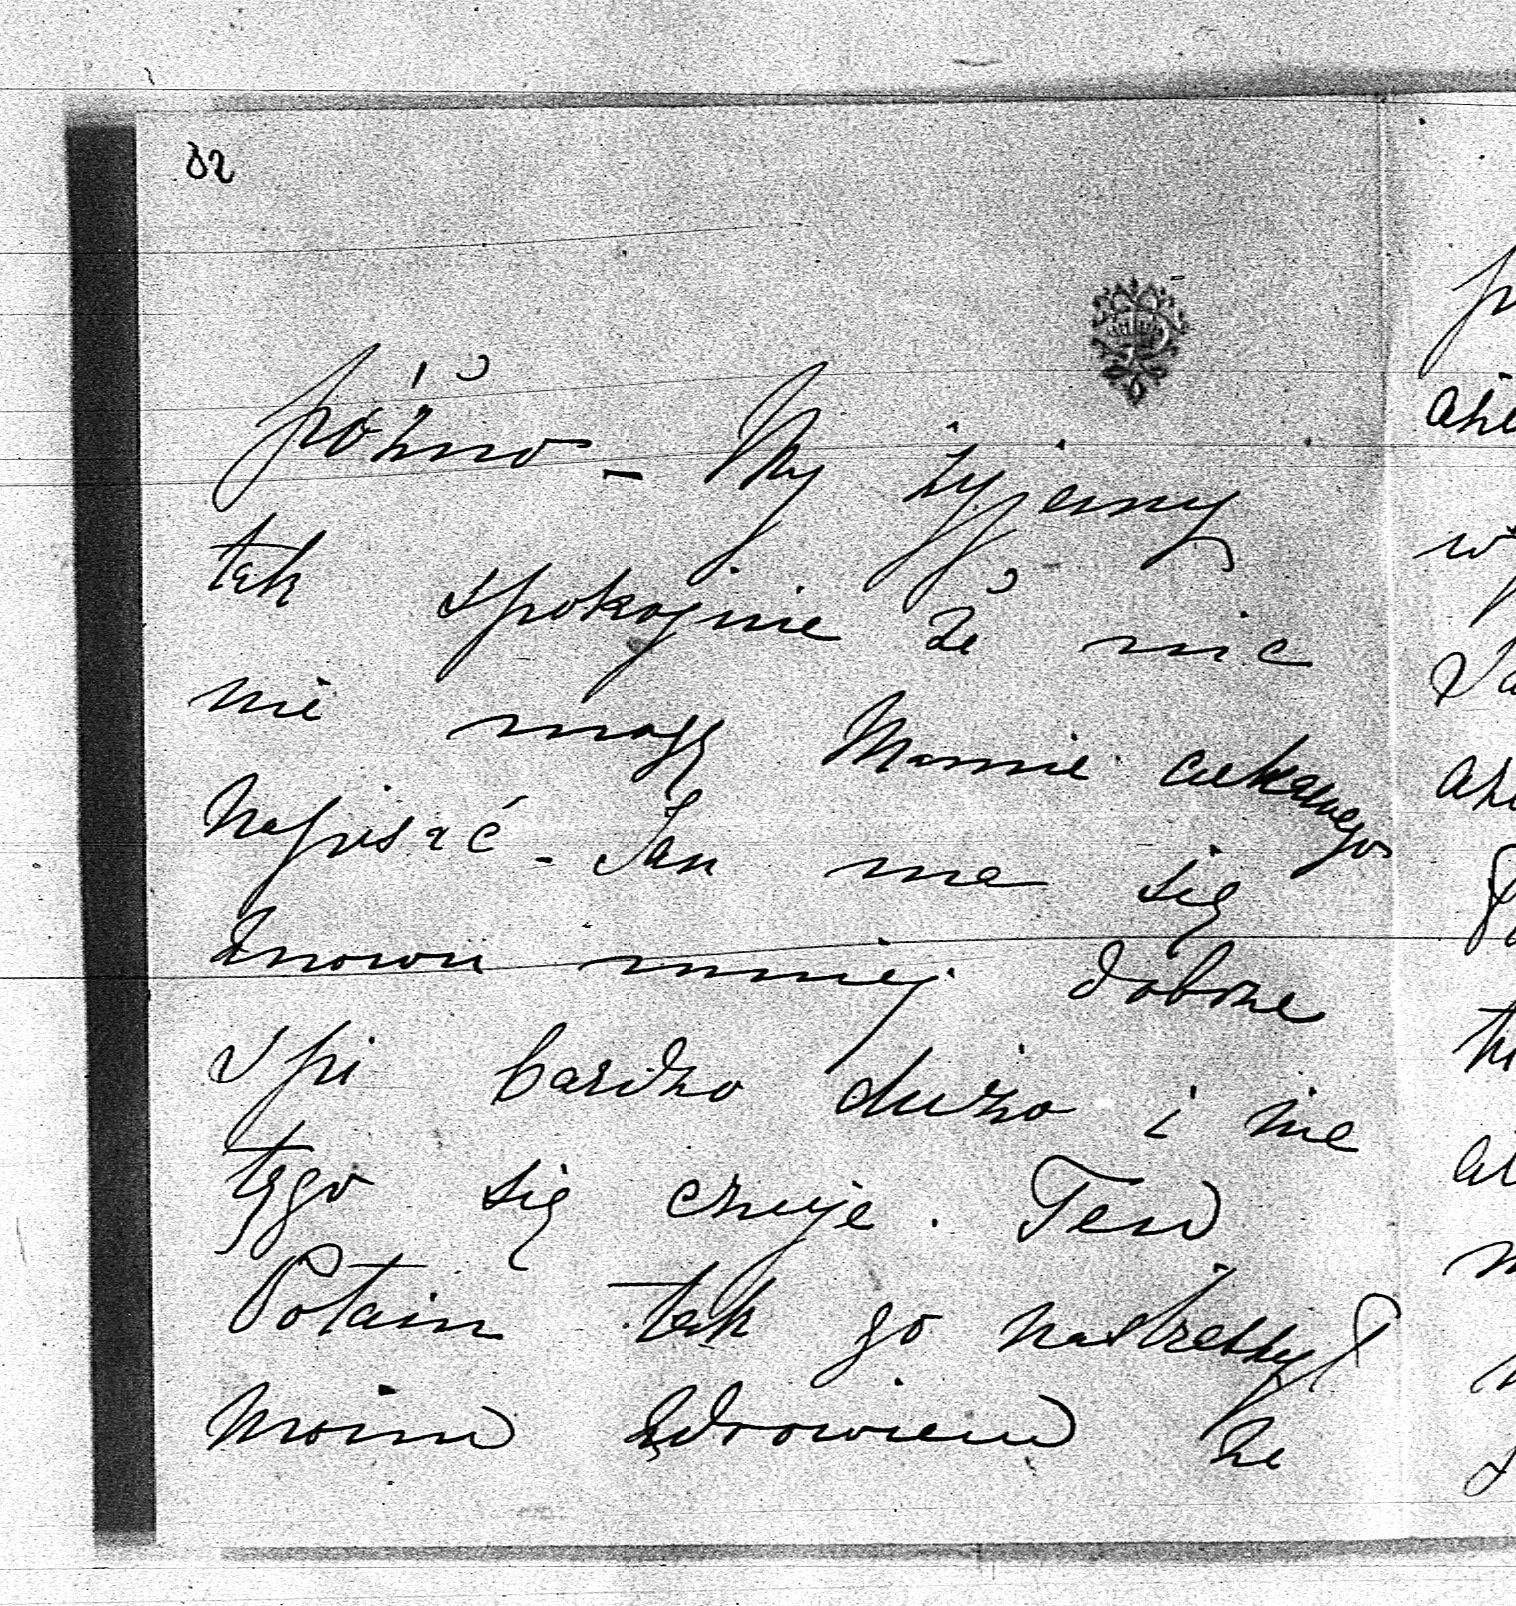 82
późno – My żyjemy
tak spokojnie że nic
nie mogę Mamie ciekawego
napisać – Jan ma się
znowu mniej dobrze
spi bardzo dużo i nie
tęgo się czuje. Ten
Potain tak go nastraszył
moim zdrowiem że